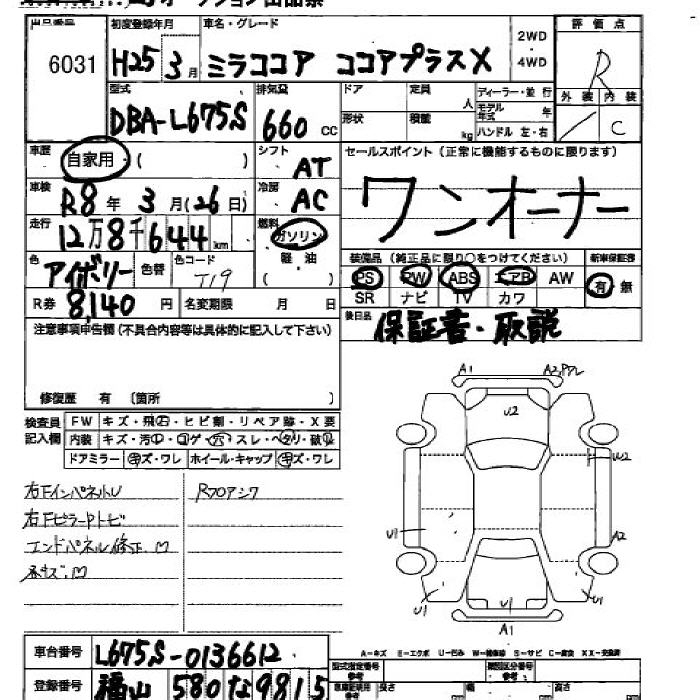 出品番号 初度登録年月 車名・グレード 2WD 評価点
6031 H25 3月 ミラココア ココアプラスX 4WD R
型式 排気量 ドア 定員 人 ディーラー・並行 外装 内装
DBA-L675S 660 CC 形状 積載 kg モデル年式 年 C
ハンドル 左・右
車歴 自家用・( ) シフト AT セールスポイント (正常に機能するものに限ります)
車検 R8年 3月(26日) 冷房 AC ワンオーナー
走行 12万8千644km 燃料 ガソリン 装備品 (純正品に限り○をつけてください) 新車保証書
色 アイボリー 色替 色コード T19 軽油 ( ) PS PW ABS エアB AW 有・無
SR ナビ TV カワ
R券 8,140円 名変期限 月 日 後日品 保証書・取説
注意事項申告欄 (不具合内容等は具体的に記入して下さい)
修復歴 有 (箇所 )
検査員記入欄 FW キズ・飛石・ヒビ割・リペア跡・X要
内装 キズ・汚・コゲ・穴・スレ・ヘタリ・破れ
ドアミラー キズ・ワレ ホイール・キャップ キズ・ワレ
右FインパネルU Rフロアシワ
右FピラーPトビ
エンドパネル修正.
A1 U2 U2 U1 A2 U1 U1 U1 A1
A=キズ E=エクボ U=凹み W=補修跡 S=サビ C=腐食 XX=交換済
車台番号 L675S-0136612 型式指定番号 参考 類別区分番号 参考
登録番号 福山 580 な 9815 長さ 幅 高さ